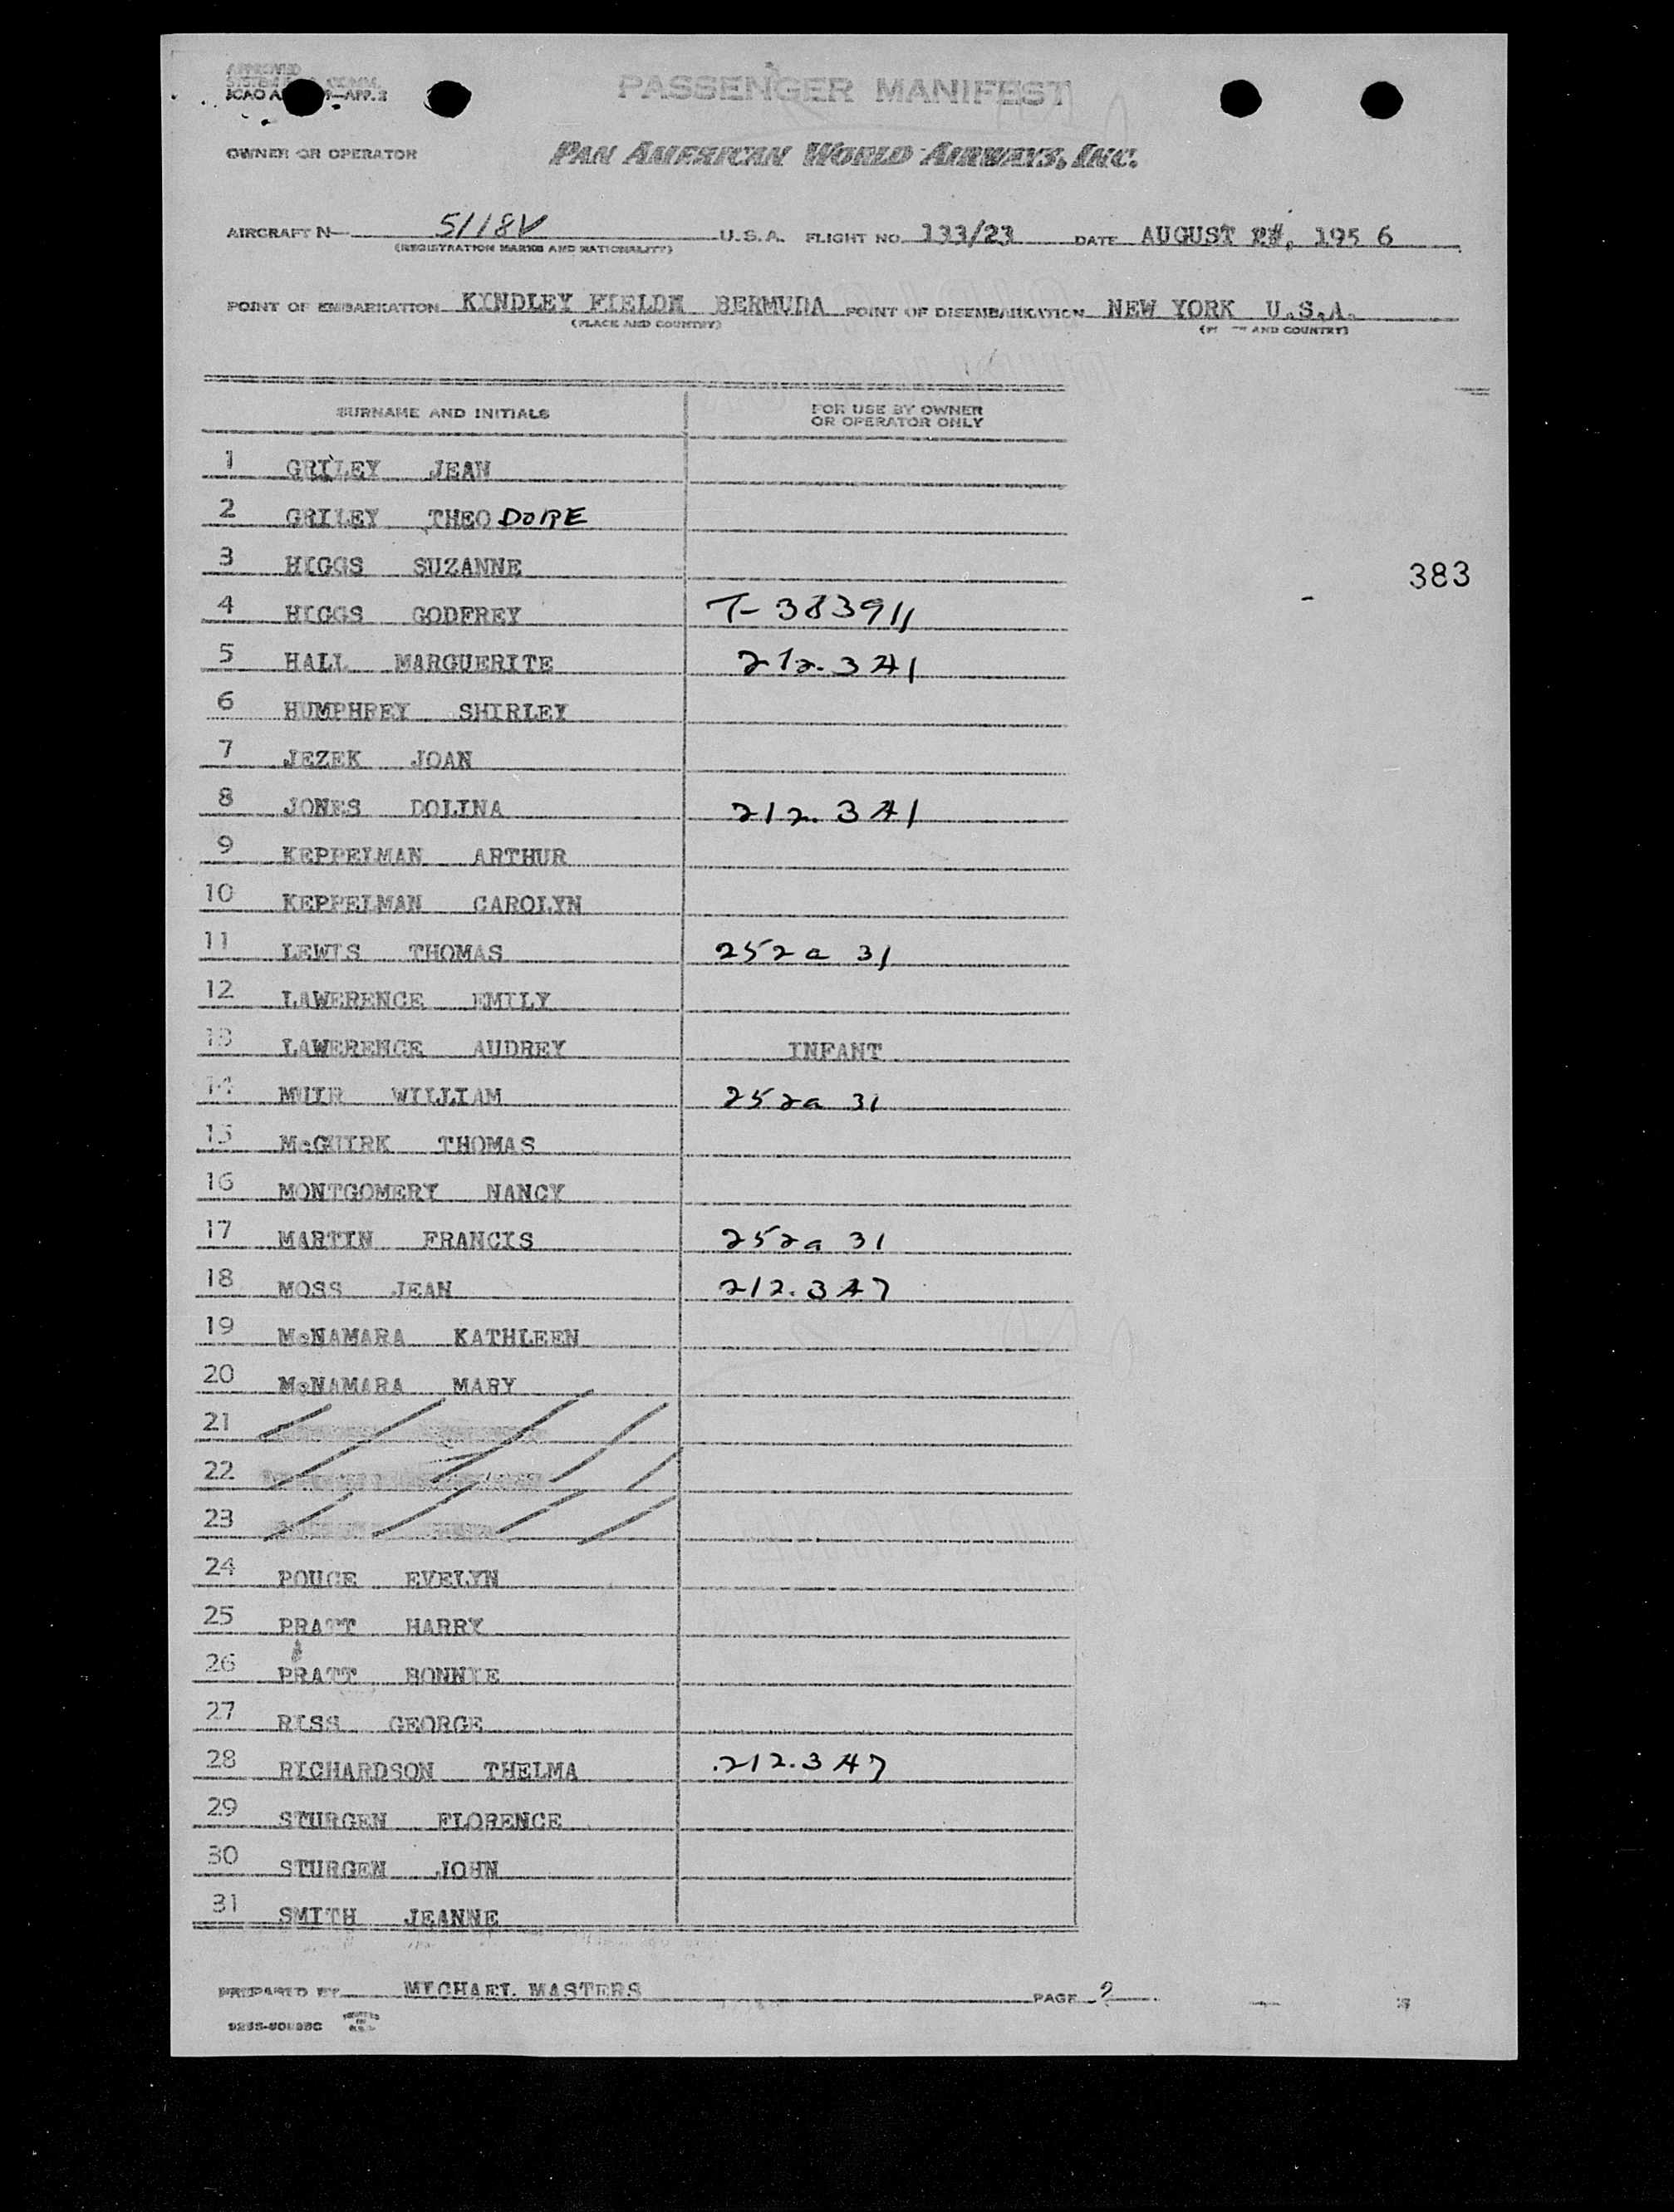 APPROVED
ICAO A
PASSENGER MANIFEST
OWNER OR OPERATOR PAN AMERICAN WORLD AIRWAYS, INC.
AIRCRAFT N- 5118V U.S.A. FLIGHT NO. 133/23 DATE AUGUST 195 6
(REGISTRATION MARKS AND NATIONALITY)
POINT OF EMBARKATION KYNDLEY FIELD BERMUDA POINT OF DISEMBARKATION NEW YORK U.S.A.
(PLACE AND COUNTRY) AND COUNTRY)
SURNAME AND INITIALS FOR USE BY OWNER
OR OPERATOR ONLY
1 GRILEY JEAN
2 GRILEY THEODORE
3 HIGGS SUZANNE
383
4 HIGGS GODFREY T-383911
5 HALL MARGUERITE 212.3 A1
6 HUMPHREY SHIRLEY
7 JEZEK JOAN
8 JONES DOLINA 212.3 A1
9 KEPPELMAN ARTHUR
10 KEPPELMAN CAROLYN
11 LEWIS THOMAS 252a 31
12 LAWERENCE EMILY
13 LAWERENCE AUDREY INFANT
14 MUIR WILLIAM 252a 31
15 McGUIRK THOMAS
16 MONTGOMERY NANCY
17 MARTIN FRANCIS 252a 31
18 MOSS JEAN 212.3 A7
19 McNAMARA KATHLEEN
20 McNAMARA MARY
21
22
23
24 POUCE EVELYN
25 PRATT HARRY
26 PRATT BONNIE
27 RISS GEORGE
28 RICHARDSON THELMA 212.3 A7
29 STURGEN FLORENCE
30 STURGEN JOHN
31 SMITH JEANNE
PREPARED BY MICHAEL MASTERS PAGE 2